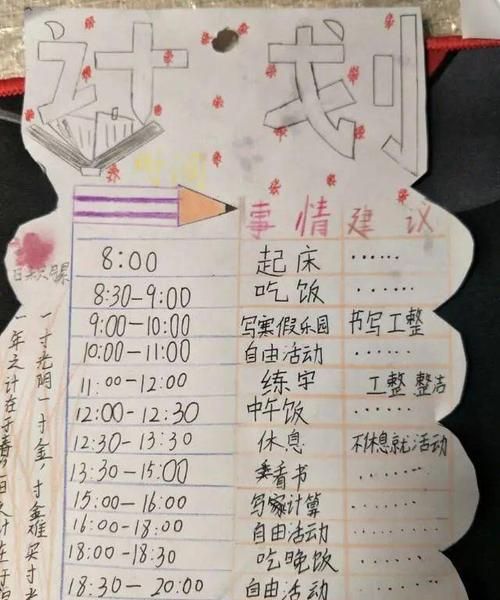 计划
时间 事情 建议
8:00 起床 ......
8:30-9:00 吃饭 ......
9:00-10:00 写寒假乐园 书写工整
10:00-11:00 自由活动 ......
11:00-12:00 练字 工整 整洁
12:00-12:30 中午饭 ......
12:30-13:30 休息 不休息就活动
13:30-15:00 看书 ......
15:00-16:00 写计算 ......
16:00-18:00 自由活动 ......
18:00-18:30 吃晚饭 ......
18:30-20:00 自由活动 ......
一寸光阴一寸金,寸金难买寸光
一年之计在于春,一日之计在于